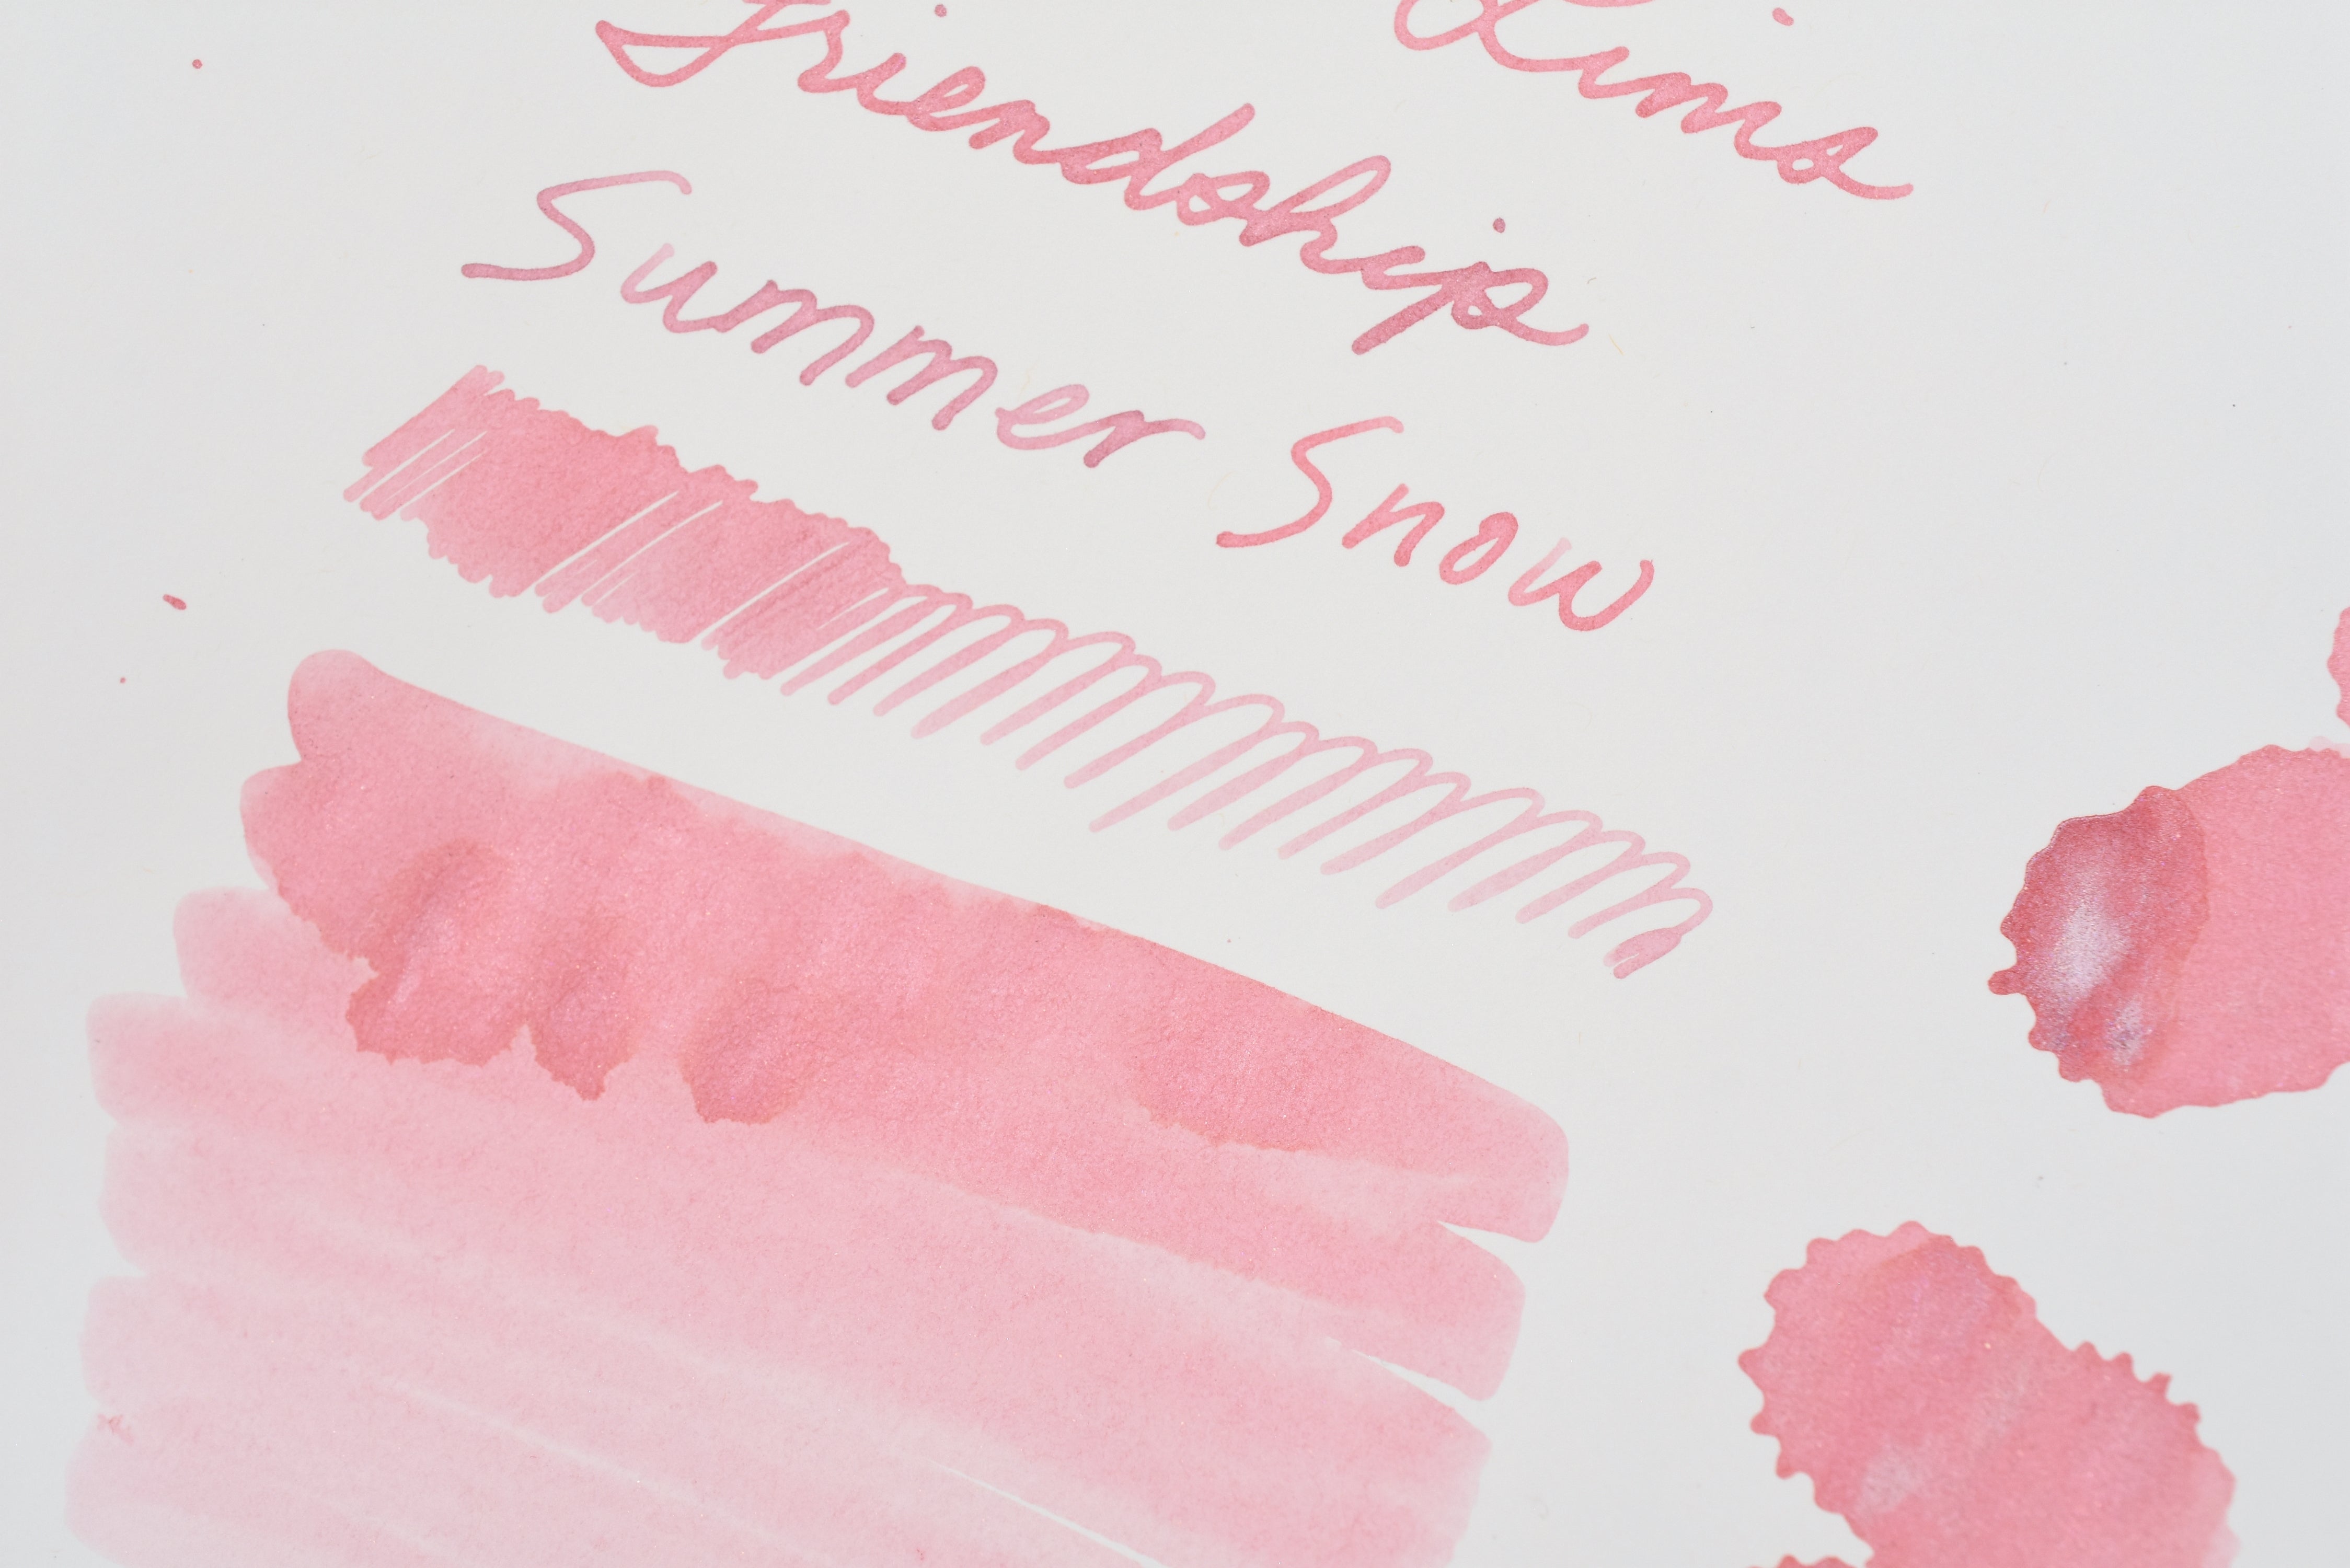 Friendship
Summer Snow